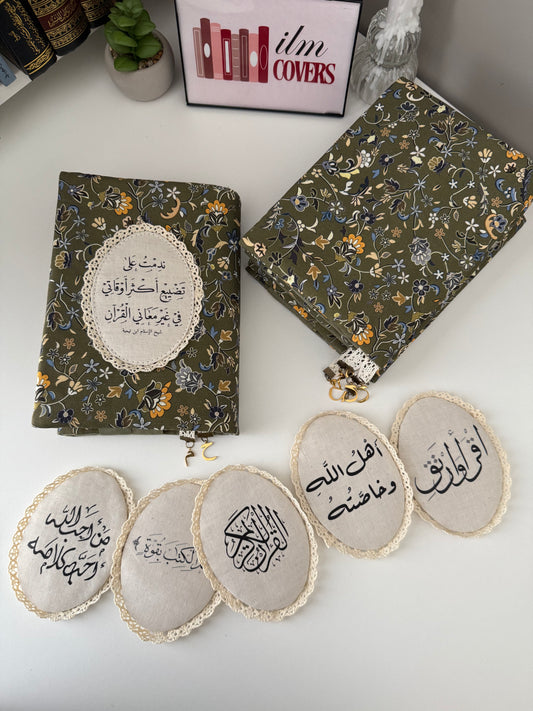 ilm
COVERS
نَدِمْتُ عَلَى
تَضْيِيعِ أَكْثَرِ أَوْقَاتِي
فِي غَيْرِ مَعَانِي الْقُرْآنِ
شيخ الإسلام ابن تيمية
مَن أحب الله
أحبّ كلامه
الكتاب بقوة
القرآن الكريم
أَهْلُ اللَّهِ
وخاصَّتُهُ
اقْرَأْ وَارْتَقِ